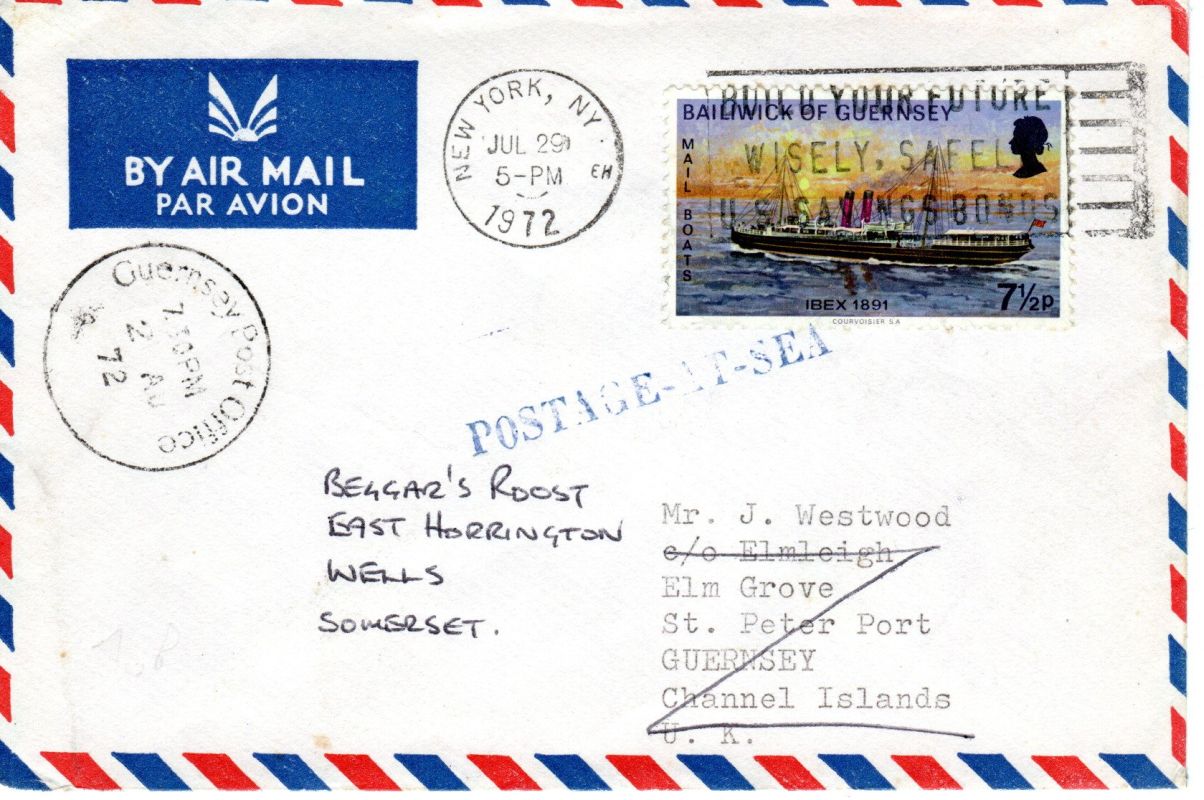 BY AIR MAIL
PAR AVION
NEW YORK, NY.
JUL 29
5-PM
EH
1972
BUILD YOUR FUTURE
WISELY, SAFEL
U.S. SAVINGS BONDS
BAILIWICK OF GUERNSEY
MAIL BOATS
IBEX 1891
7½p
COURVOISIER S.A
Guernsey Post Office
7.30PM
2 AU
72
POSTAGE-AT-SEA
BEGGAR'S ROOST
EAST HORRINGTON
WELLS
SOMERSET.
Mr. J. Westwood
c/o Elmleigh
Elm Grove
St. Peter Port
GUERNSEY
Channel Islands
U. K.